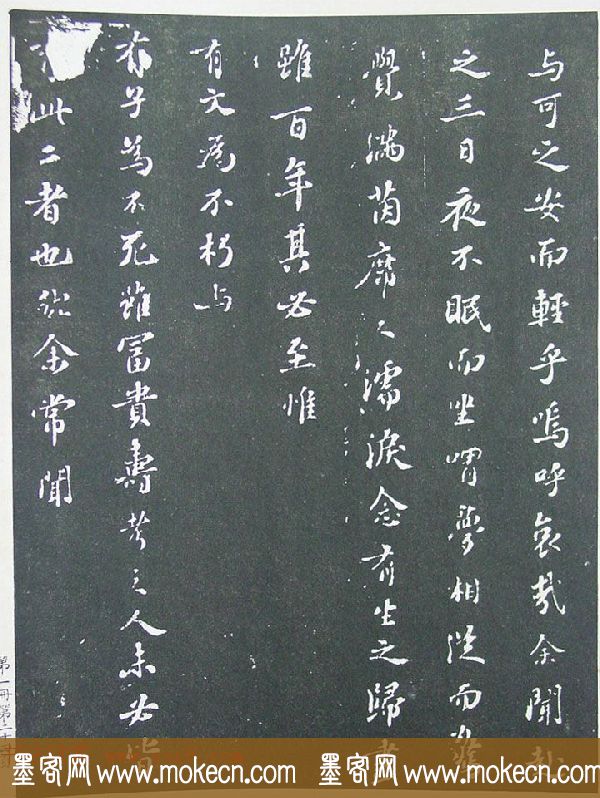 与可之安而輕乎嗚呼哀哉余聞赴
之三日夜不眠而坐喟夢相從而驚
覺滿茵席之濡淚念有生之歸盡
雖百年其必至惟
有文為不朽与
有子為不死雖冨貴壽考之人未必皆
此二者也然余常聞
第一冊第二十
墨客网 www.mokecn.com 墨客网 www.mokecn.com